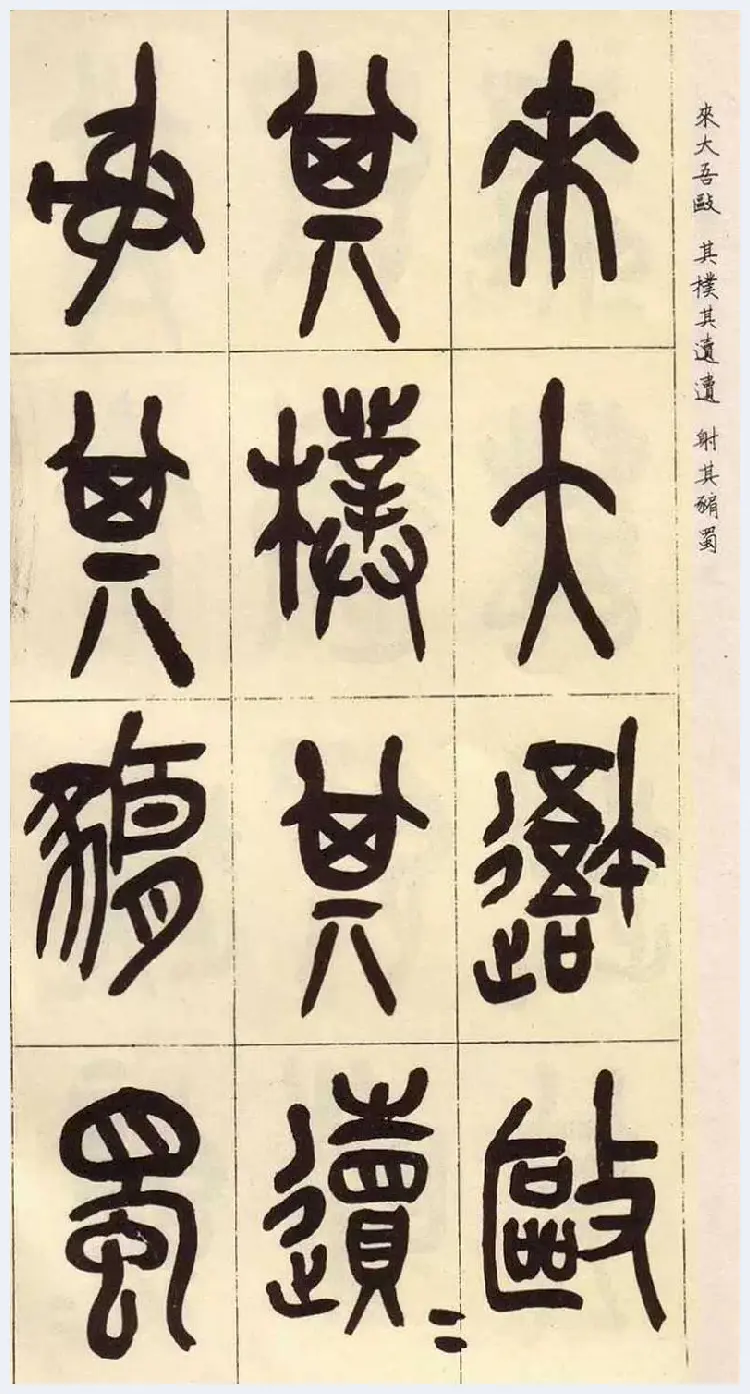 來大吾敺 其樸其遺遺 射其豜蜀
來大吾敺
其樸其遺〓
射其豜蜀